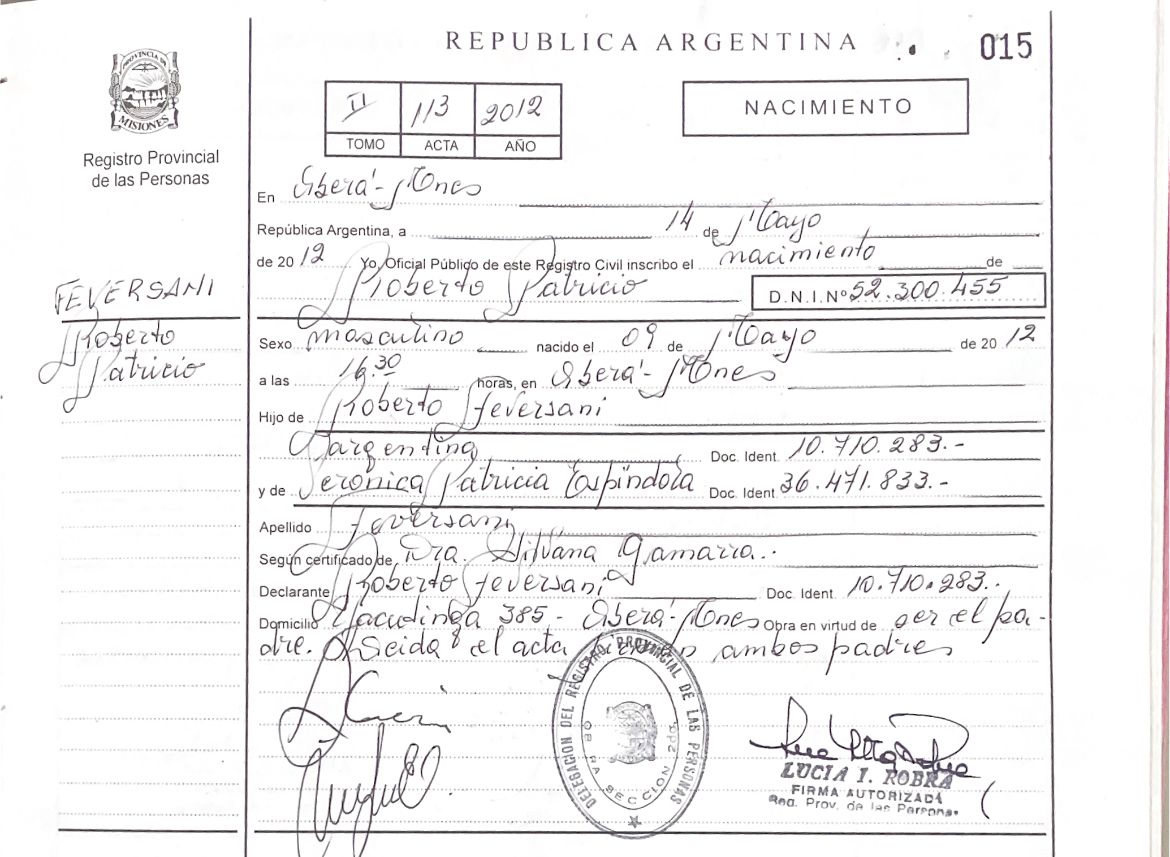 REPUBLICA ARGENTINA
015
PROVINCIA DE
MISIONES
Registro Provincial
de las Personas
II 113 2012
TOMO ACTA AÑO
NACIMIENTO
En Oberá - Mnes
República Argentina, a 14 de Mayo
de 20 12 Yo, Oficial Público de este Registro Civil inscribo el nacimiento de
Roberto Patricio D.N.I.Nº 52.300.455
FEVERSANI
Roberto
Patricio
Sexo masculino nacido el 09 de Mayo de 20 12
a las 16.30 horas, en Oberá - Mnes
Hijo de Roberto Feversani
argentina Doc. Ident. 10.710.283.-
y de Veronica Patricia Espíndola Doc. Ident 36.471.833.-
Apellido Feversani
Según certificado de, Dra. Silvana Gamarra.
Declarante Roberto Feversani Doc. Ident. 10.710.283.
Domicilio 385 - Oberá - Mnes Obra en virtud de ser el pa-
dre. Leida el acta ambos padres
DELEGACION DEL REGISTRO PROVINCIAL DE LAS PERSONAS
OBERA SECCION
LUCIA I. ROBRA
FIRMA AUTORIZADA
Reg. Prov. de las Personas